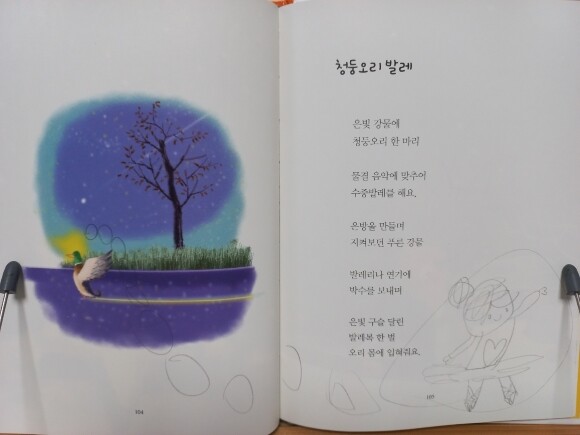 청둥오리 발레
은빛 강물에
청둥오리 한 마리
물결 음악에 맞추어
수중발레를 해요.
은방울 만들며
지켜보던 푸른 강물
발레리나 연기에
박수를 보내며
은빛 구슬 달린
발레복 한 벌
오리 몸에 입혀줘요.
104
105